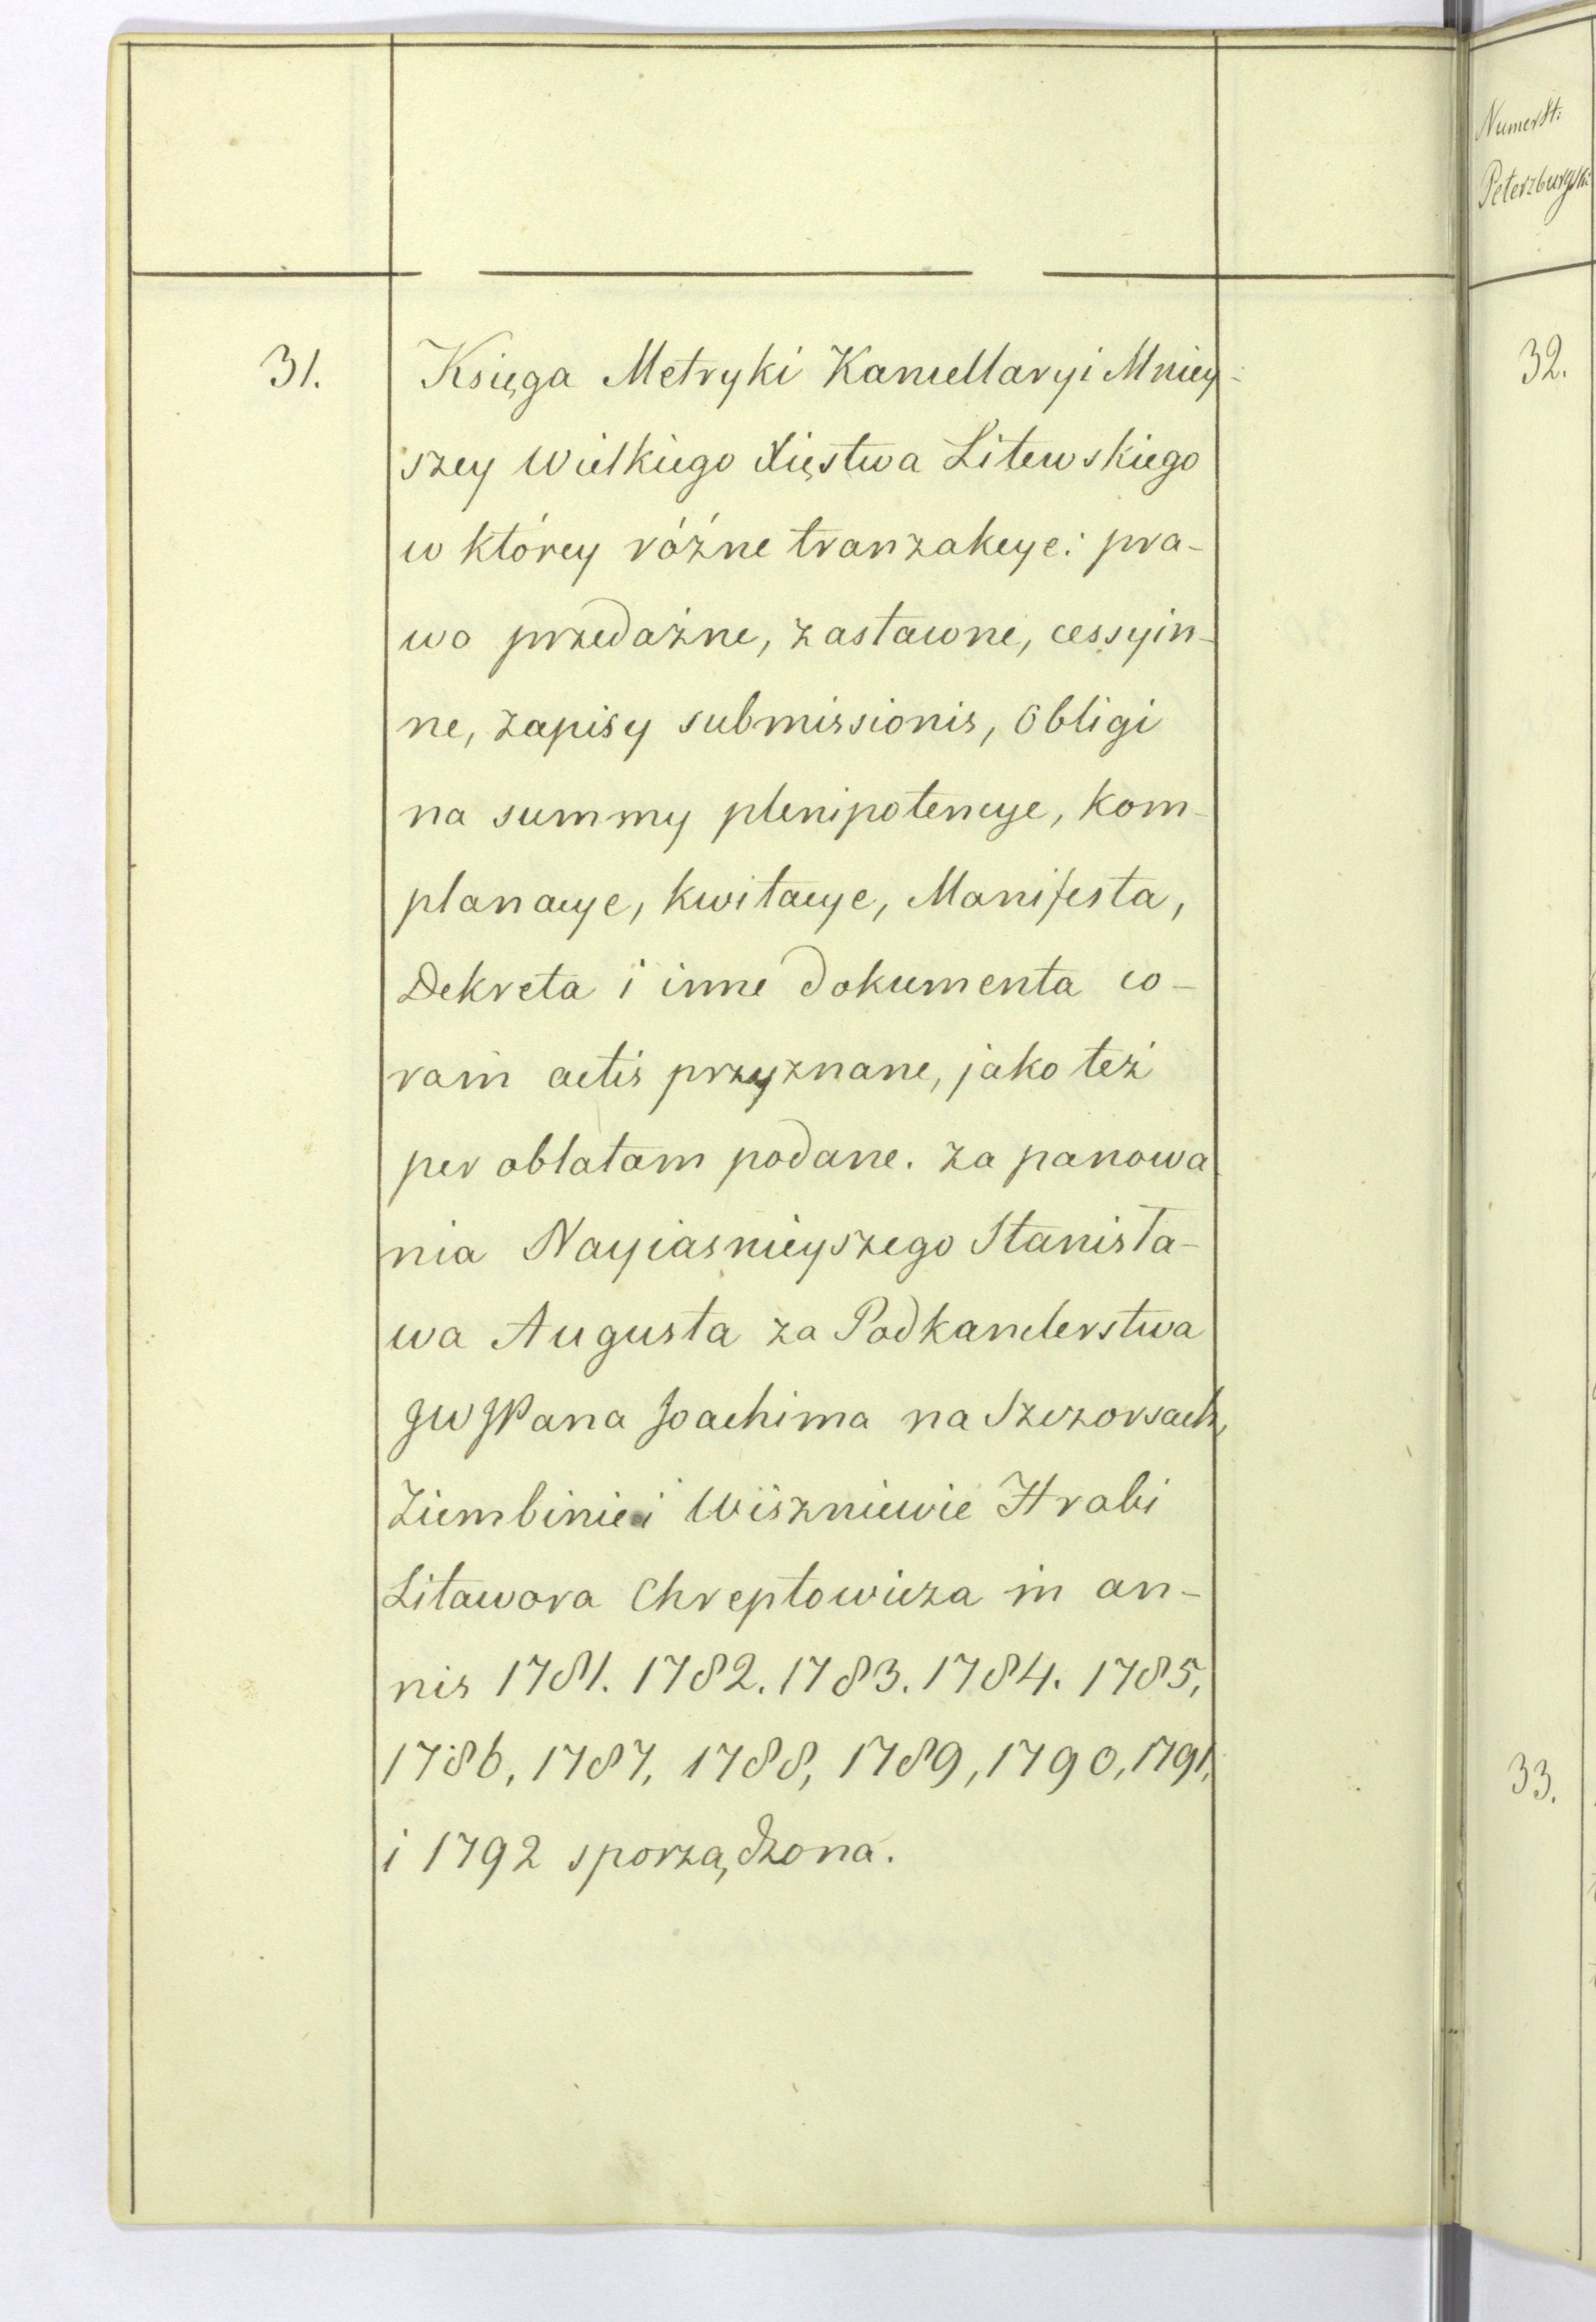 31. Księga Metryki Kancellaryi Mniey-
szey Wielkiego Xięstwa Litewskiego
w którey różne tranzakcye: pra-
wo przedażne, zastawne, cessyin-
ne, zapisy submissionis, obligi
na summy plenipotencye, kom-
planacye, kwitacye, Manifesta,
Dekreta i inne dokumenta co-
ram actis przyznane, jako też
per oblatam podane. za panowa
nia Nayiasnieyszego Stanisła-
wa Augusta za Podkanclerstwa
JWJPana Joachima na Szczorsach,
Ziembinie i Wiszniewie Hrabi
Litawora Chreptowicza in an-
nis 1781. 1782. 1783. 1784. 1785,
1786, 1787, 1788, 1789, 1790, 1791,
i 1792 sporządzona.
Numer St:
Peterzburgski:
32.
33.